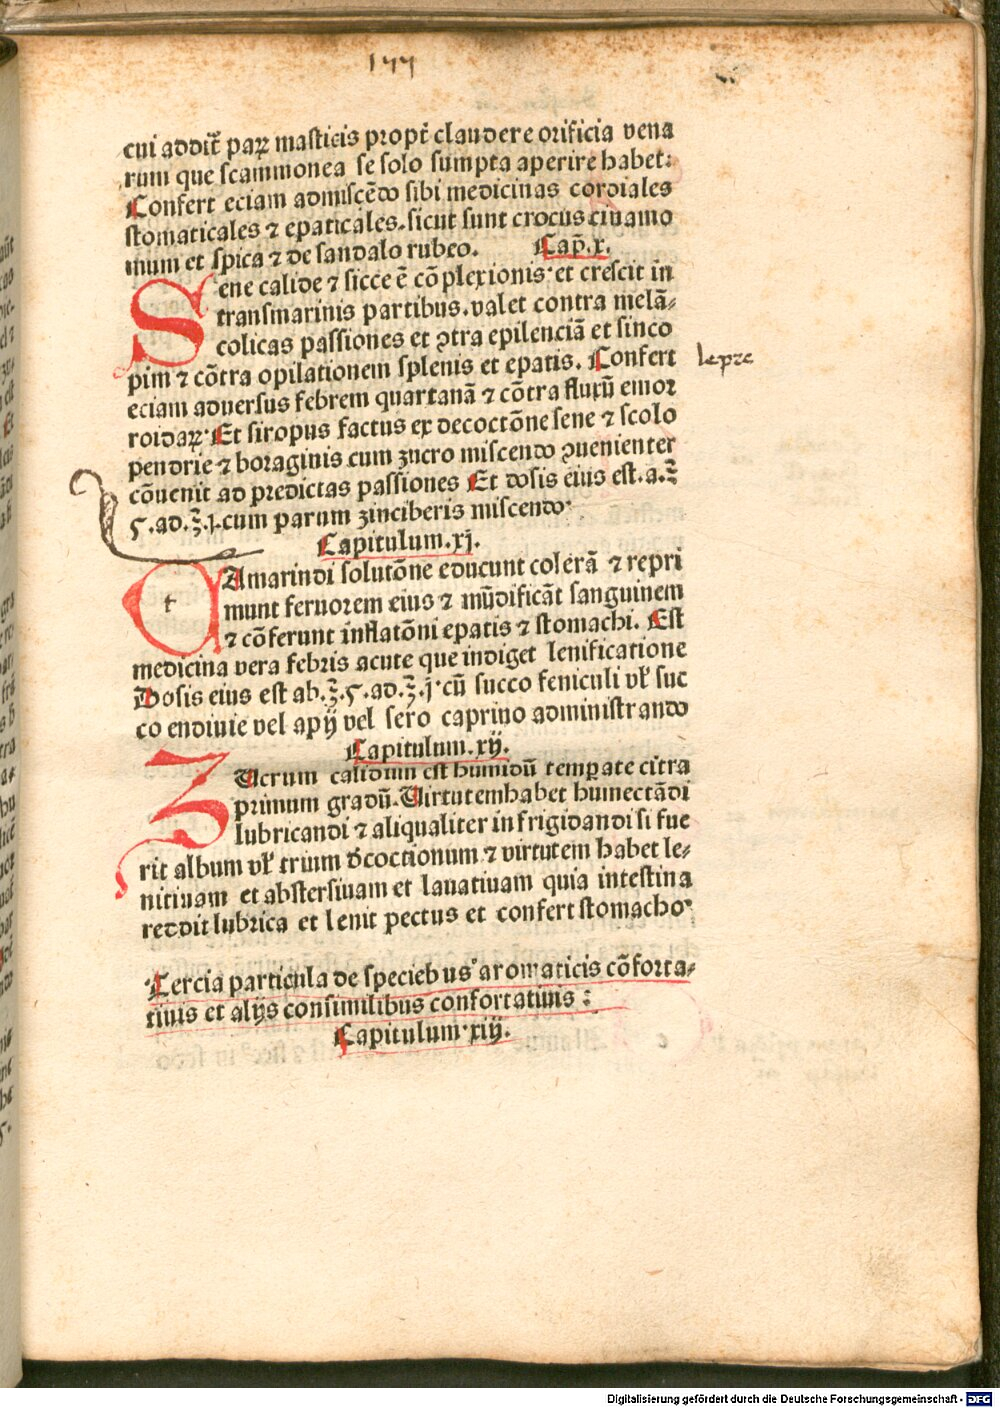 177
cui addit̄ paꝝ masticis propt̄ claudere orificia vena
rum que scammonea se solo sumpta aperire habet:
Confert eciam admiscēdo sibi medicinas cordiales
stomaticales ⁊ epaticales. sicut sunt crocus cinamo
mum et spica ⁊ de sandalo rubeo. Cap̄. x.
Sene calide ⁊ sicce ē cōplexionis· et crescit in
transmarinis partibus. valet contra melā⸗
colicas passiones et ꝯtra epilenciā et sinco
pim ⁊ cōtra opilationem splenis et epatis. Confert
lepre
eciam aduersus febrem quartanā ⁊ cōtra fluxū emor
roidaꝝ· Et siropus factus ex decoctōne sene ⁊ scolo
pendrie ⁊ boraginis cum zucro miscendo ꝯuenienter
cōuenit ad predictas passiones Et dosis eius est. a. ℥
5. ad. ℥. j. cum parum zinciberis miscendo·
Capitulum. xj.
tAmarindi solutōne educunt colerā ⁊ repri
munt feruorem eius ⁊ mūdificāt sanguinem
⁊ cōferunt inflatōni epatis ⁊ stomachi. Est
medicina vera febris acute que indiget lenificatione
Dosis eius est ab. ℥. 5. ad. ℥. j· cū succo feniculi vl̄ suc
co endiuie vel apij vel sero caprino administrando
Capitulum. xij.
ZUcrum calidum est humidū temperate citra
primum gradū. Virtutem habet humectādi
lubricandi ⁊ aliqualiter infrigidandi si fue
rit album vl̄ trium d̄coctionum ⁊ virtutem habet le⸗
nitiuam et abstersiuam et lauatiuam quia intestina
reddit lubrica et lenit pectus et confert stomacho·
Tercia particula de speciebus aromaticis cōforta⸗
tiuis et alijs consimilibus confortatiuis :
Capitulum· xiij.
Digitalisierung gefördert durch die Deutsche Forschungsgemeinschaft - DFG